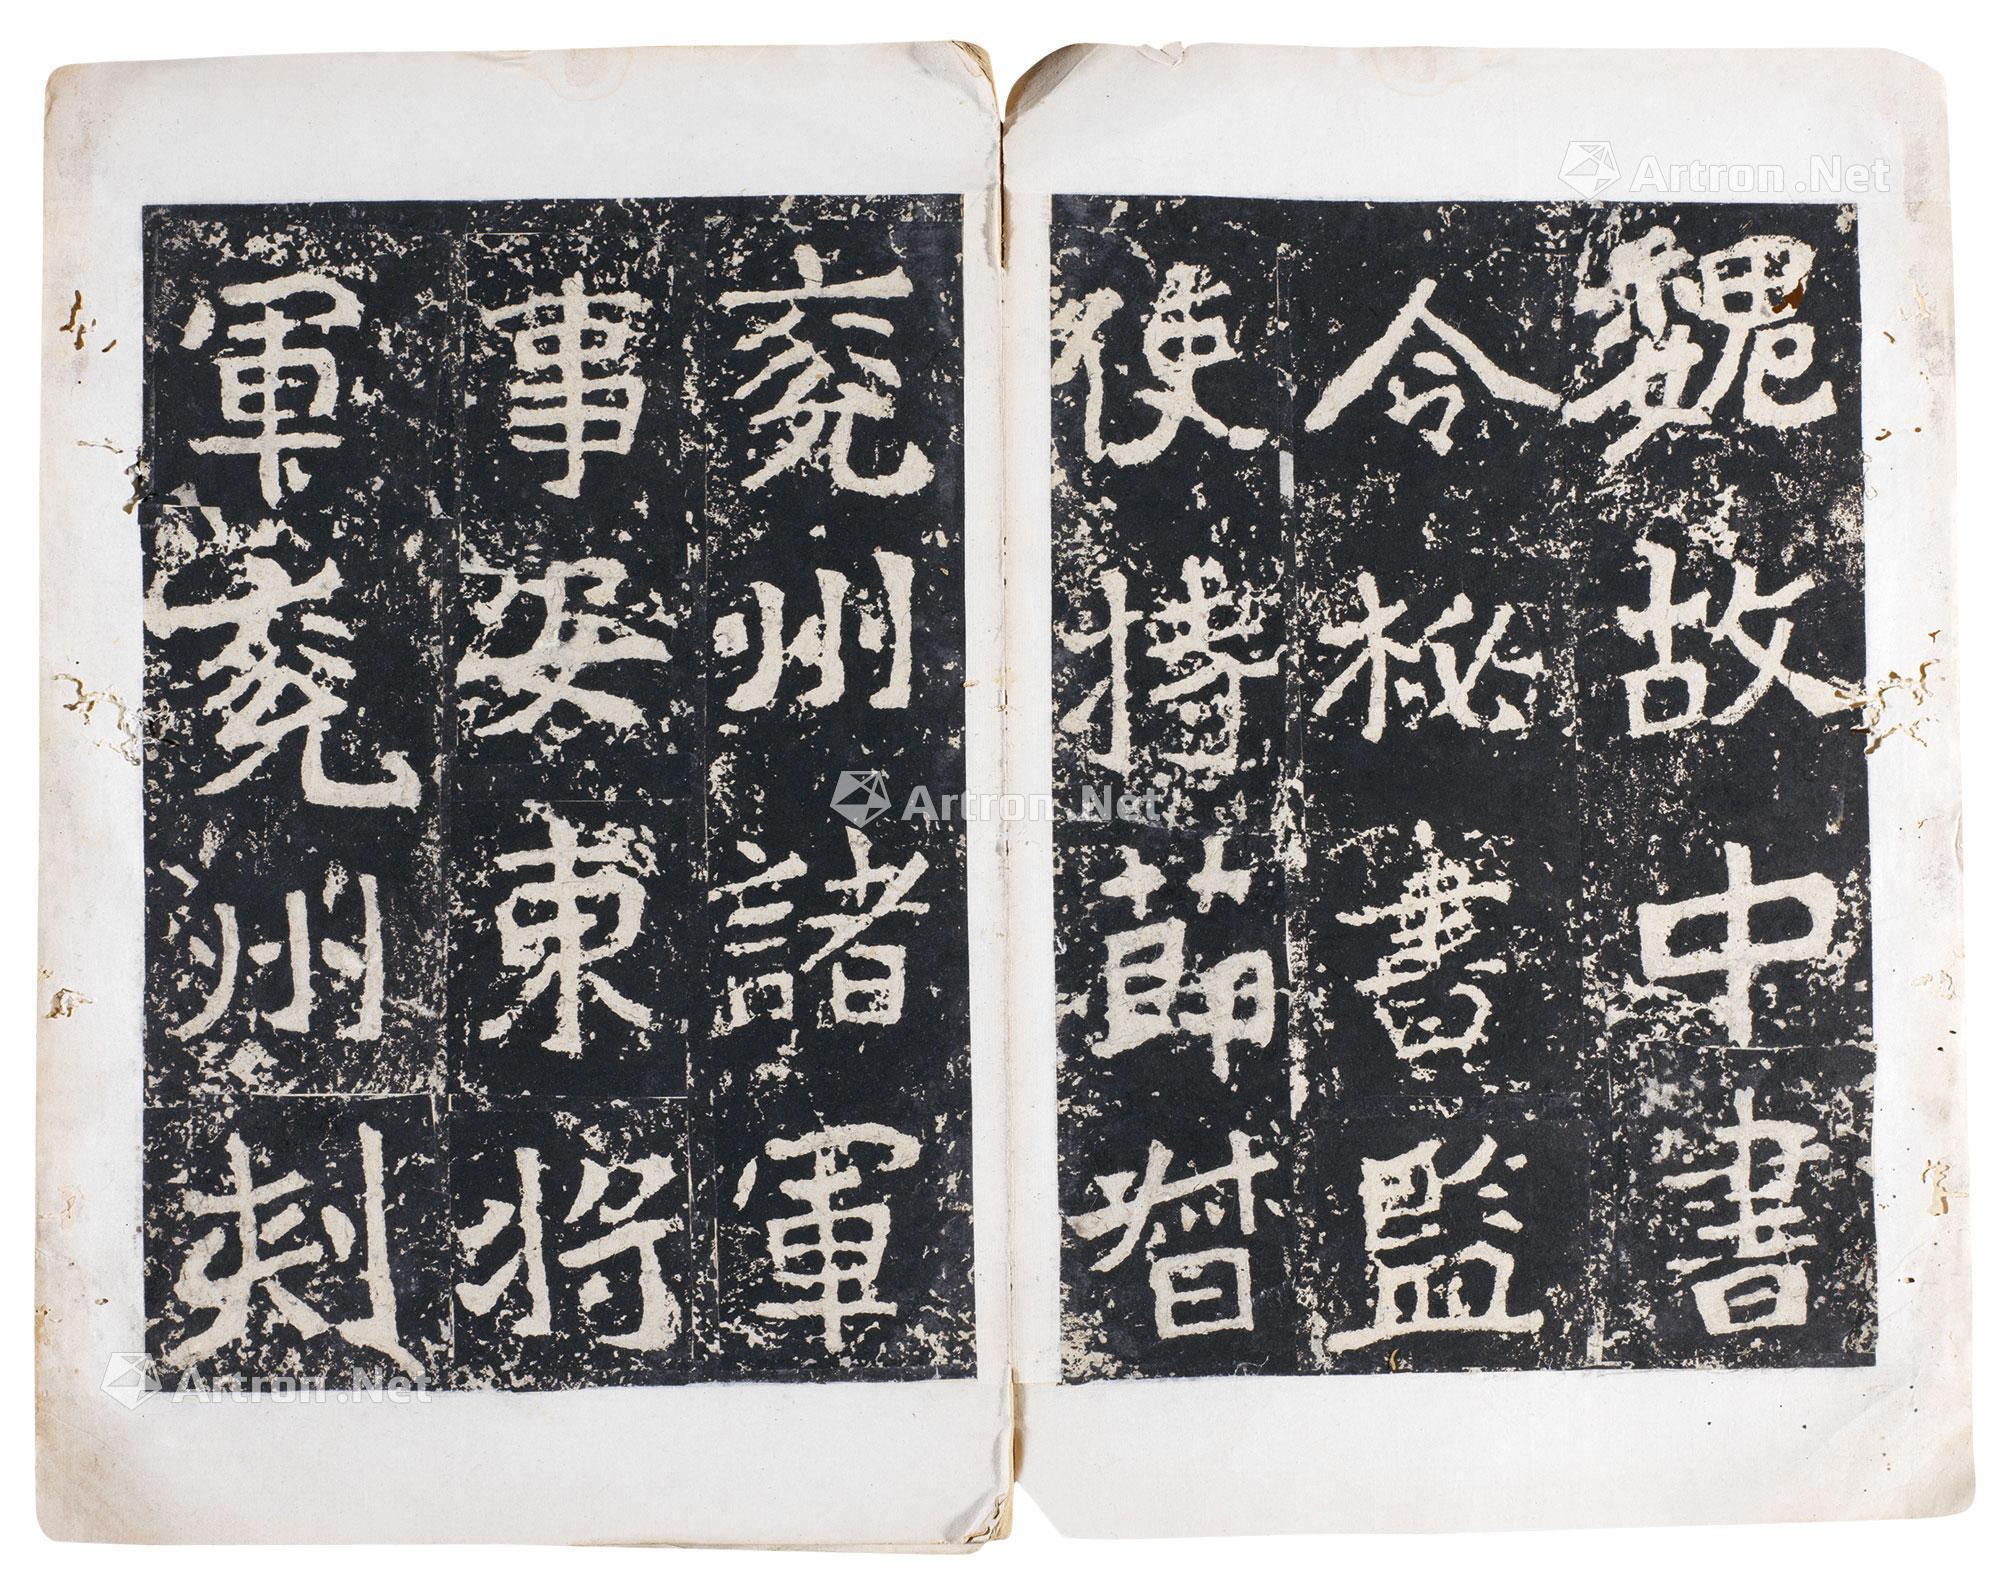 魏故中書
令秘書監
使持節督
兗州諸軍
事安東將
軍兗州刾
Artron.Net
Artron.Net
Artron.Net